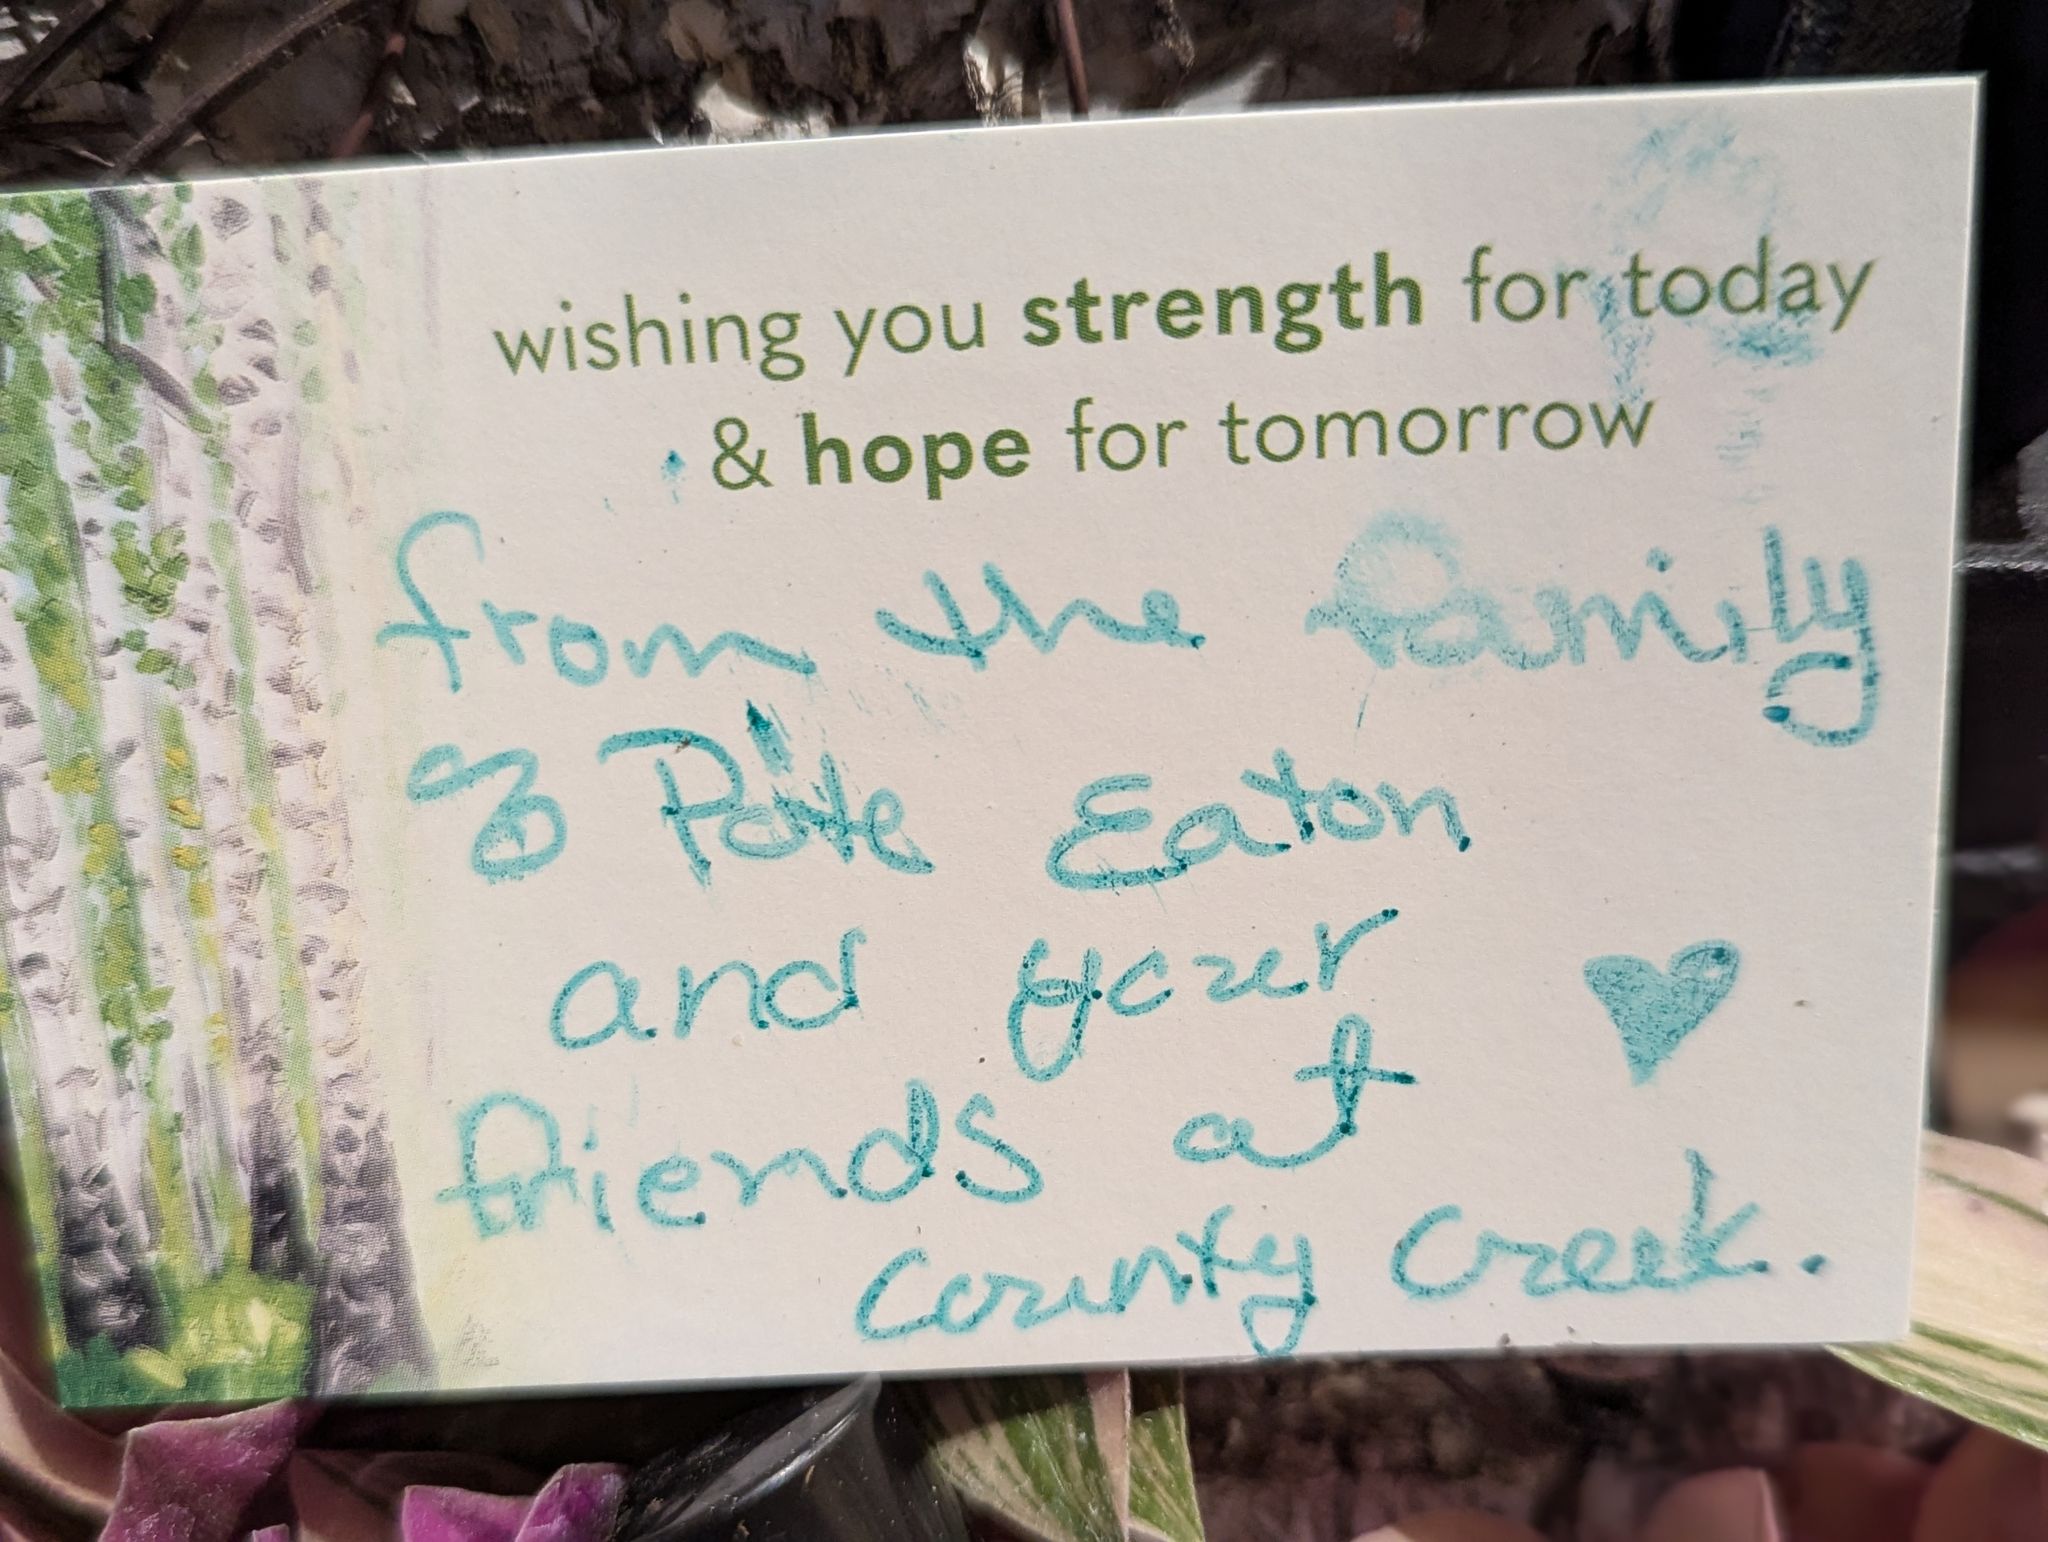 wishing you strength for today
& hope for tomorrow
from the family
of Pete Eaton
and your
friends at
County Creek.